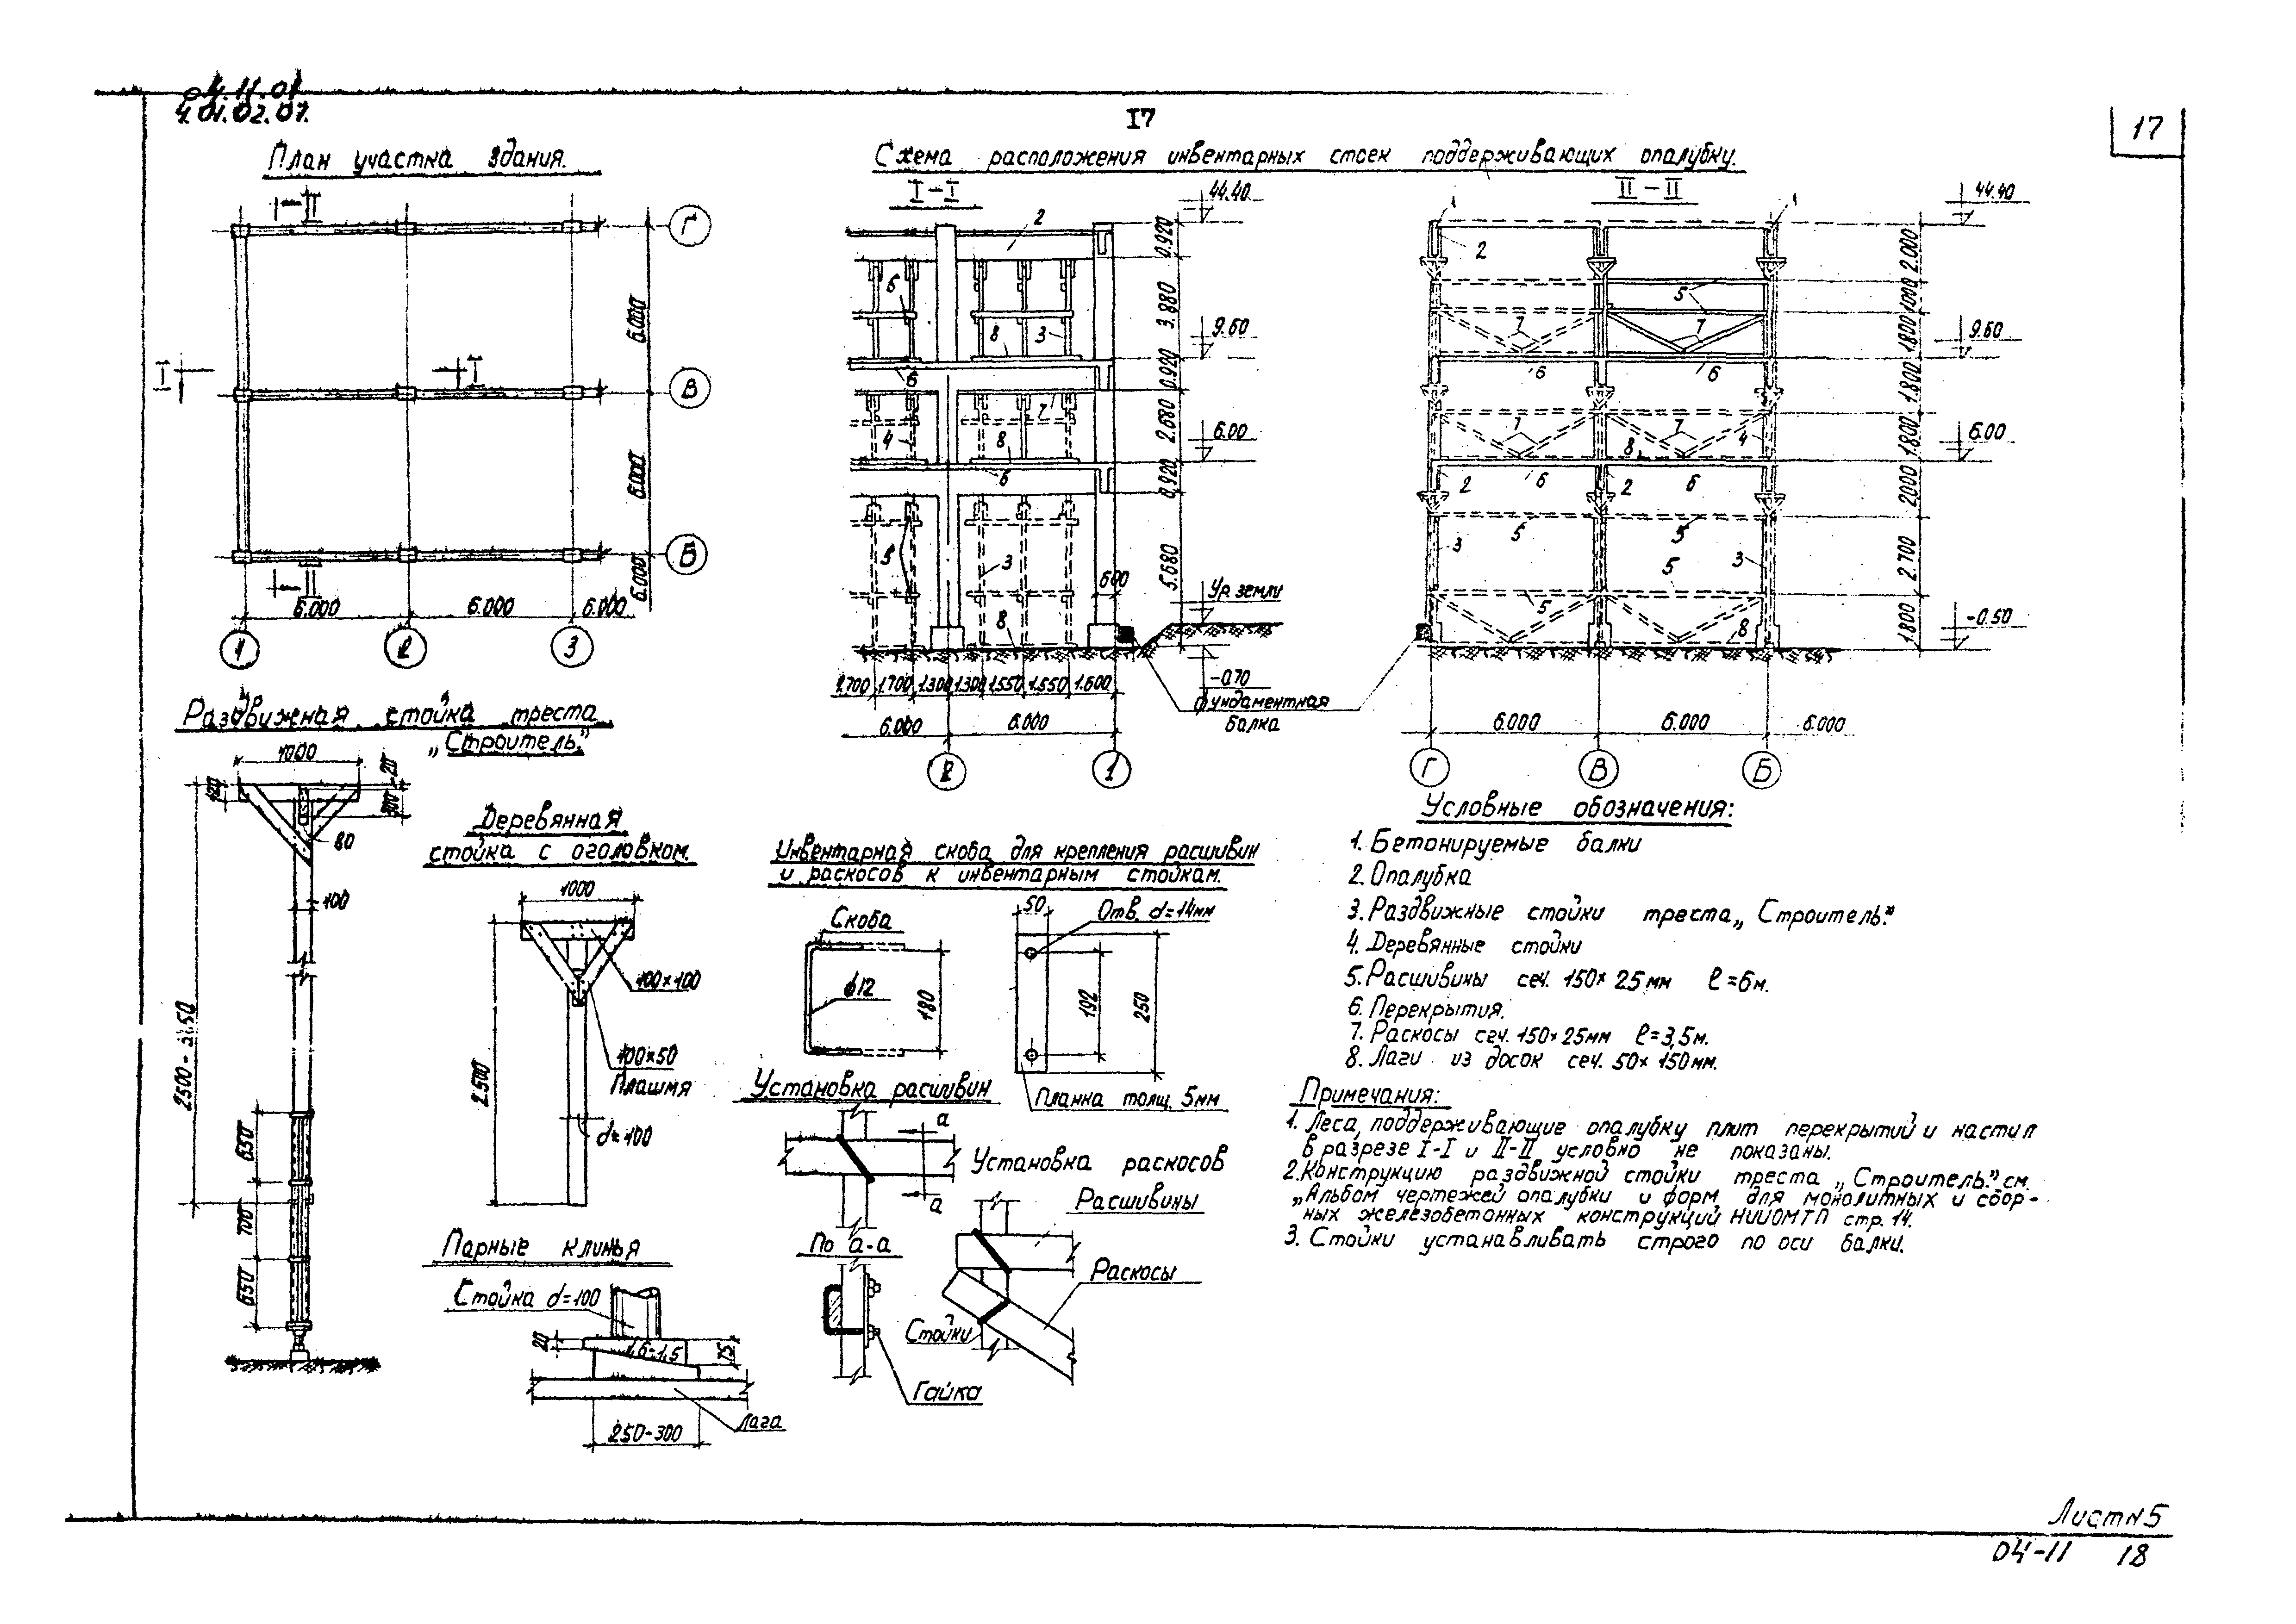 4.01.02.07.
17
17
План участка здания.
II
Г
6.000
I
I
В
6.000
Б
6.000
6.000
6.000
6.000
1
2
3
Схема расположения инвентарных стоек поддерживающих опалубку.
I-I
44.40
2
0.920
6
3.880
9.60
8
3
6
0.920
7
2.680
4
8
6.00
6
0.920
5
3
5.680
600
Ур. земли
8
-0.70
1.700
1.700
1.300
1.300
1.550
1.550
1.600
6.000
6.000
2
1
фундаментная
балка
II-II
44.40
1
1
2
2.000
5
1000
7
7
1.800
9.60
6
6
1.800
7
7
4
1.800
8
6.00
2
6
2
6
2000
5
5
3
3
2.700
5
5
8
1.800
-0.50
6.000
6.000
6.000
Г
В
Б
Раздвижная стойка треста
„Строитель."
1000
120
20
80
100
2500-
650
700
650
Деревянная
стойка с оголовком.
1000
100×100
100×50
Плашмя
2.500
d=100
Парные клинья
Стойка d=100
20
75
Лага
250-300
Инвентарная скоба для крепления расшивин
и раскосов к инвентарным стойкам.
Скоба
ф12
180
50
Отв. d=14мм
192
250
Планка толщ. 5мм
Установка расшивин
а
а
По а-а
Гайка
Установка раскосов
Расшивины
Раскосы
Стойки
Условные обозначения:
1. Бетонируемые балки
2. Опалубка
3. Раздвижные стойки треста „Строитель."
4. Деревянные стойки
5. Расшивины сеч. 150×25мм ℓ=6м.
6. Перекрытия.
7. Раскосы сеч. 150×25мм ℓ=3,5м.
8. Лаги из досок сеч. 50×150мм.
Примечания:
1. Леса, поддерживающие опалубку плит перекрытий и настил
в разрезе I-I и II-II условно не показаны.
2. Конструкцию раздвижной стойки треста „Строитель." см.
„Альбом чертежей опалубки и форм для монолитных и сбор-
ных железобетонных конструкций НИИОМТП стр. 14.
3. Стойки устанавливать строго по оси балки.
Лист N5
04-11 18